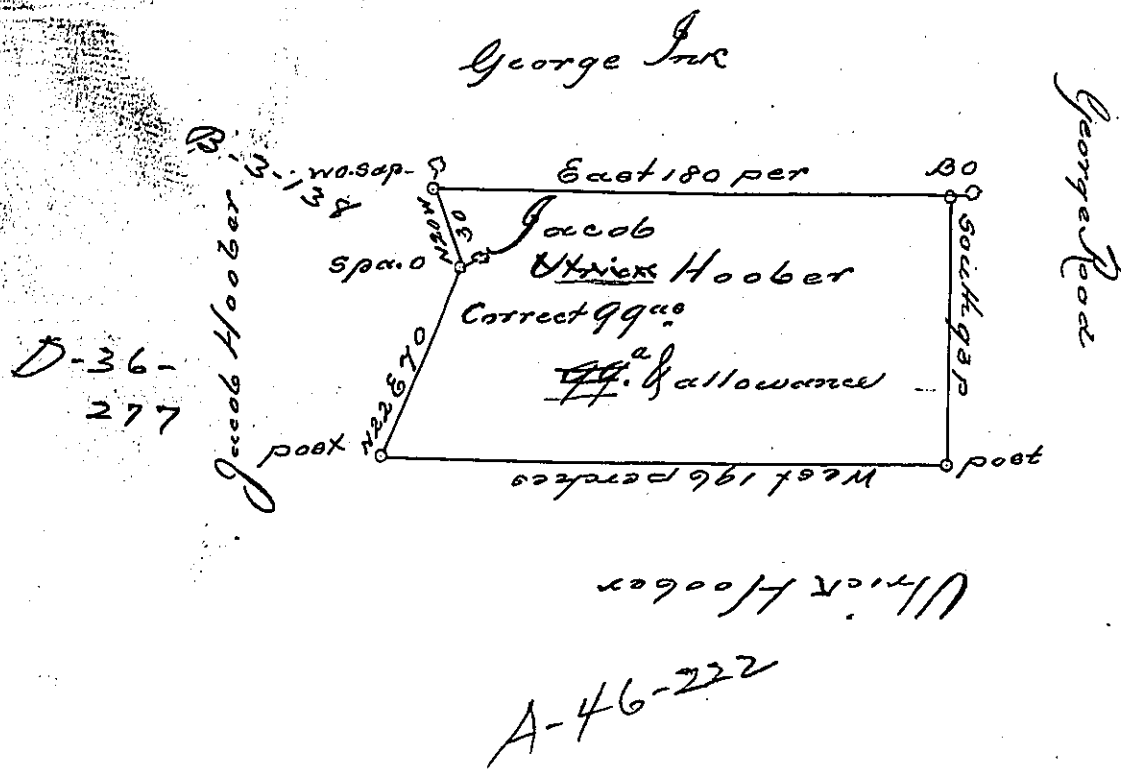 George Ink
George Rood
B-3-138
wo. sap.
East 180 per
BO
N20W
30
South 93 P
Jacob
Ulrick Hoober
spa.o
Correct 99 as.
99.a & allowance
Jacob Hoober
D-36-
277
N22E70
post
West 196 perches
post
Ulrick Hoober
A-46-222